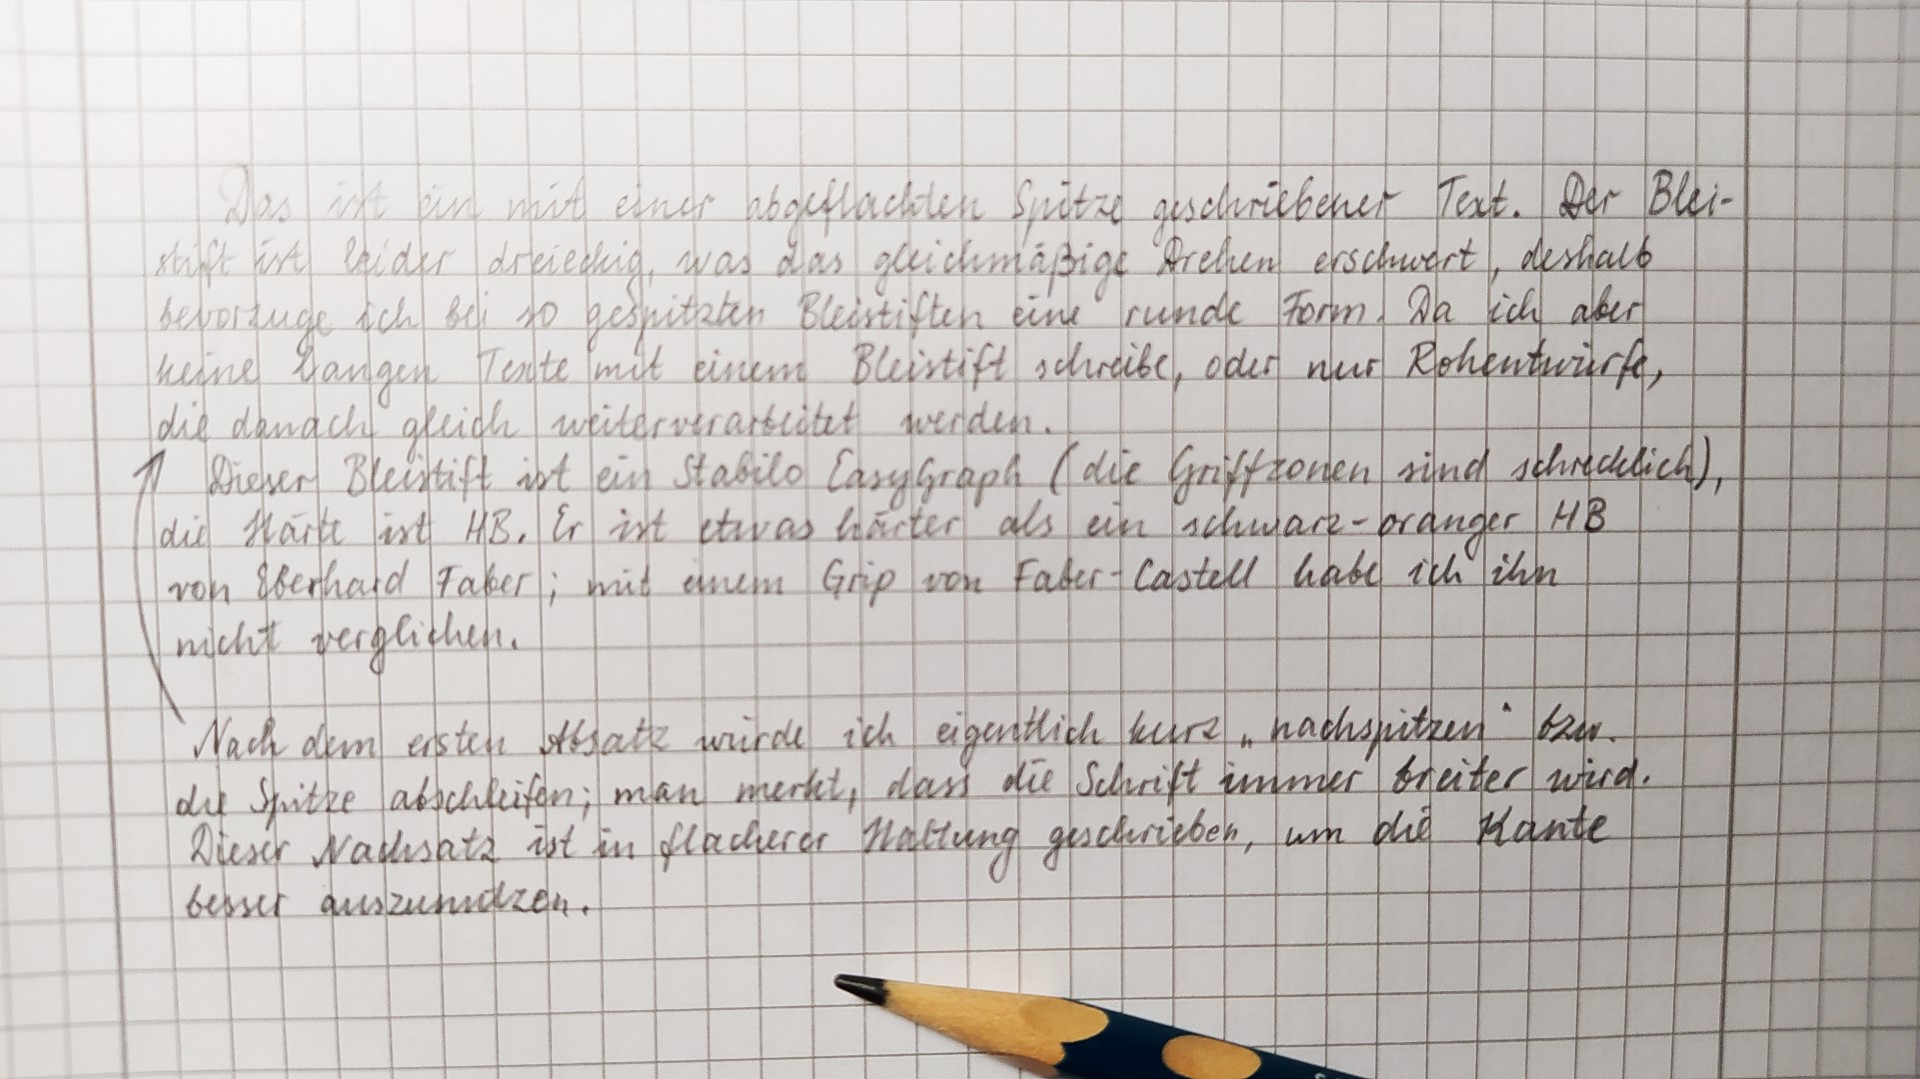 Das ist ein mit einer abgeflachten Spitze geschriebener Text. Der Blei-
stift ist leider dreieckig, was das gleichmäßige Drehen erschwert, deshalb
bevorzuge ich bei so gespitzten Bleistiften eine runde Form. Da ich aber
keine langen Texte mit einem Bleistift schreibe, oder nur Rohentwürfe,
die danach gleich weiterverarbeitet werden.
Dieser Bleistift ist ein Stabilo EasyGraph (die Griffzonen sind schrecklich),
die Härte ist HB. Er ist etwas härter als ein schwarz-oranger HB
von Eberhard Faber; mit einem Grip von Faber-Castell habe ich ihn
nicht verglichen.
Nach dem ersten Absatz würde ich eigentlich kurz „nachspitzen“ bzw.
die Spitze abschleifen; man merkt, dass die Schrift immer breiter wird.
Dieser Nachsatz ist in flacherer Haltung geschrieben, um die Kante
besser auszunutzen.